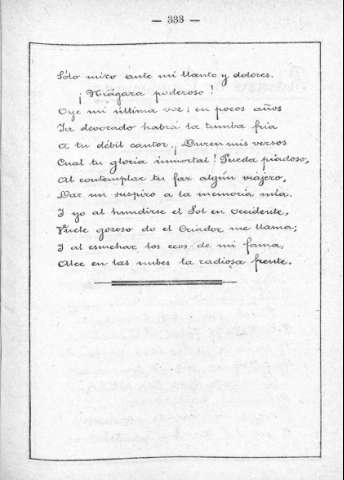 — 333 —
Sólo miro ante mí llanto y dolores.
¡Niágara poderoso!
Oye mi última voz; en pocos años
Ya devorado habrá la tumba fria
A tu débil cantor. ¡Duren mis versos
Cual tu gloria inmortal! Pueda piadoso,
Al contemplar tu faz algún viajero,
Dar un suspiro a la memoria mía.
Y yo al hundirse el Sol en occidente,
Vuele gozoso do el Criador me llama;
Y al escuchar los ecos de mi fama,
Alce en las nubes la radiosa frente.